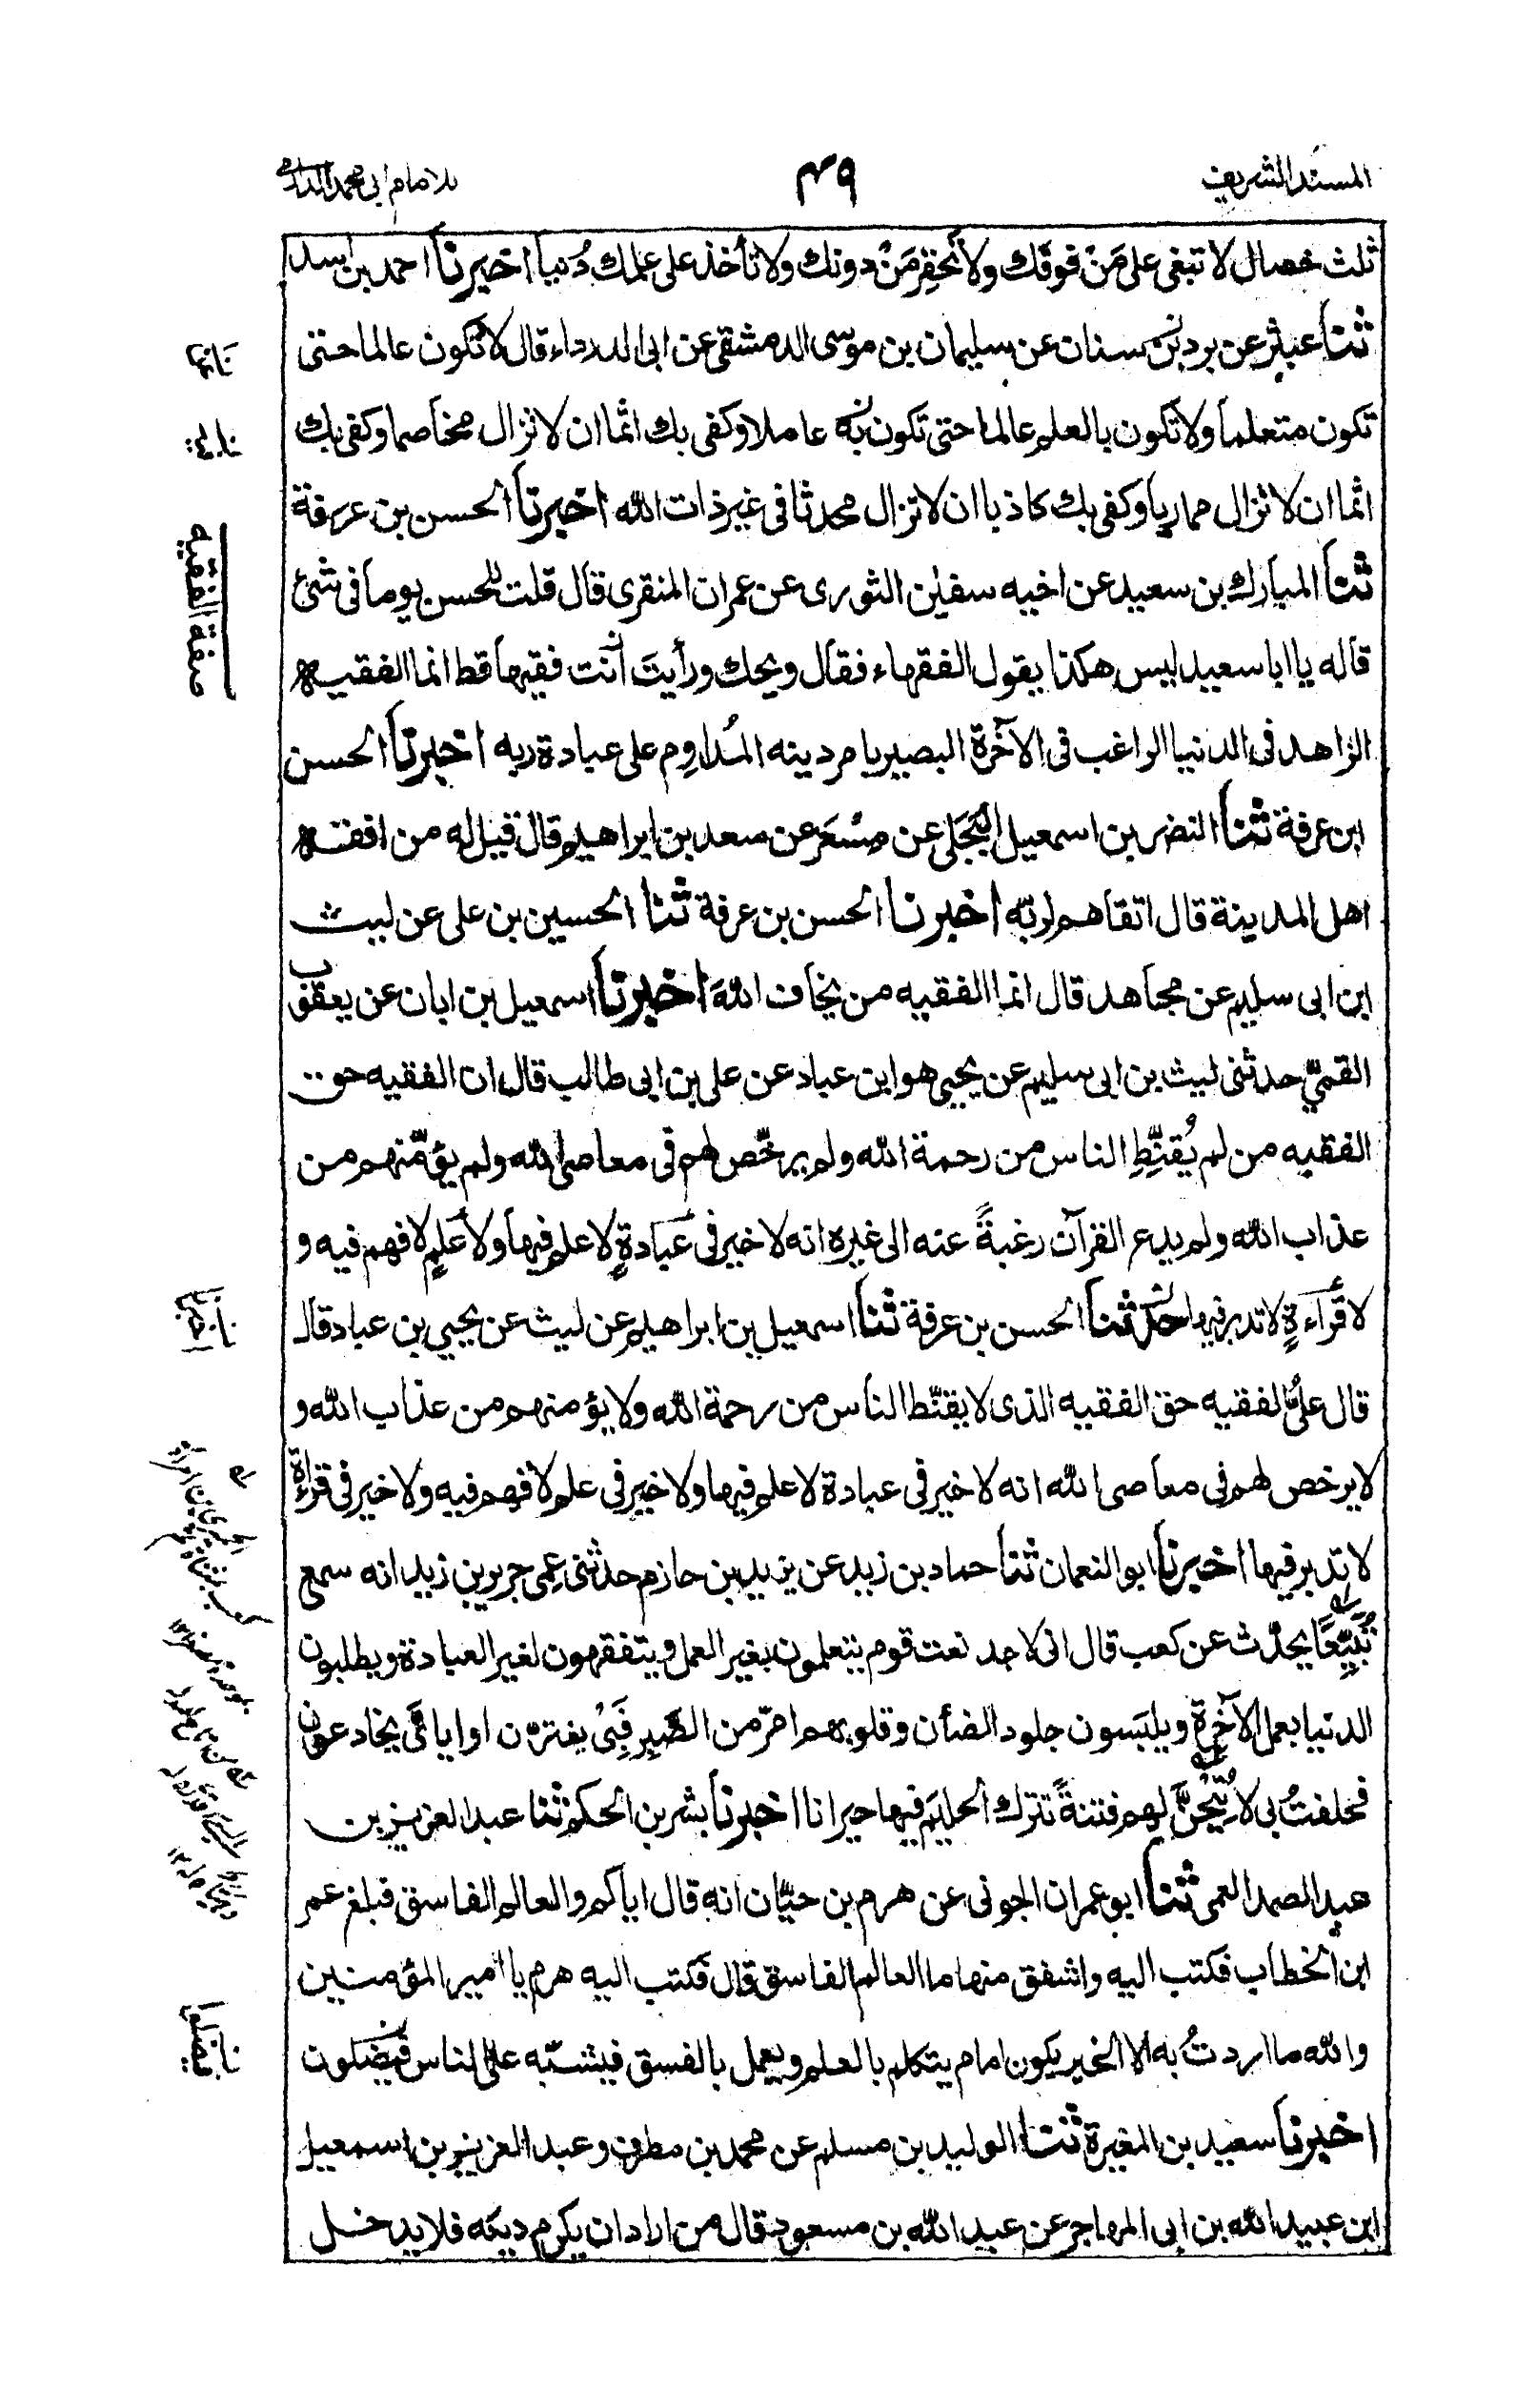 المسند الشريف
٤٩
للامام ابى محمد الدارمى
ثلث خصال لا تبغى على مَنْ فوقك ولا تُحقِر مَنْ دونك ولا تأخذ على علمك دُنيا اخبرنا احمد بن اسد
ثنا عبثر عن برد بن سنان عن سليمان بن موسى الدمشقى عن ابى الدرداء قال لا تكون عالما حتى
تكون متعلما ولا تكون بالعلم عالما حتى تكون به عاملا وكفى بك اثما ان لا تزال مخاصما وكفى بك
اثما ان لا تزال مماريا وكفى بك كاذبا ان لا تزال محدثا فى غير ذات الله اخبرنا الحسن بن عرفة
ثنا المبارك بن سعيد عن اخيه سفيٰن الثورى عن عمران المنقرى قال قلت للحسن يوما فى شئ
قاله يا ابا سعيد ليس هكذا يقول الفقهاء فقال ويحك ورأيتَ أنت فقيها قط انما الفقيه
الزاهد فى الدنيا الراغب فى الآخرة البصير بامر دينه المُداوِم على عبادة ربه اخبرنا الحسن
ابن عرفة ثنا النضر بن اسمعيل البَجَلى عن مِسْعَر عن سعد بن ابراهيم قال قيل له من افقه
اهل المدينة قال اتقاهم لربّه اخبرنا الحسن بن عرفة ثنا الحسين بن على عن ليث
ابن ابى سليم عن مجاهد قال انما الفقيه من يخاف اللهَ اخبرنا اسمعيل بن ابان عن يعقوب
القمىّ حدثنى ليث بن ابى سليم عن يحيى هو ابن عباد عن على بن ابى طالب قال ان الفقيه حق
الفقيه من لم يُقنِّطِ الناس من رحمة الله ولم يرخّص لهم فى معاصى الله ولم يؤمّنهم من
عذاب الله ولم يدع القرآن رغبةً عنه الى غيره انه لا خير فى عبادةٍ لا علم فيها ولا علمٍ لا فهم فيه و
لا قراءةٍ لا تدبر فيها حدثنا الحسن بن عرفة ثنا اسمعيل بن ابراهيم عن ليث عن يحيى بن عباد قال
قال علىٌّ الفقيه حق الفقيه الذى لا يقنّط الناس من رحمة الله ولا يؤمنهم من عذاب الله و
لا يرخص لهم فى معاصى الله انه لا خير فى عبادة لا علم فيها ولا خير فى علم لا فهم فيه ولا خير فى قراءة
لا تدبر فيها اخبرنا ابو النعمان ثنا حماد بن زيد عن يزيد بن حازم حدثنى عمى جرير بن زيد انه سمع
تُبَيعًا يحدّث عن كعب قال انى لاجد نعت قوم يتعلمون بغير العمل ويتفقهون لغير العبادة ويطلبون
الدنيا بعمل الآخرة ويلبَسون جلود الضأن وقلوبهم امرّ من الصَّبِر فَبِىْ يغترّن او اياىَ يخادعون
فحلفتُ بى لاُتِيْحَنَّ لهم فتنةً تترك الحليمَ فيها حيرانا اخبرنا بشر بن الحكم ثنا عبد العزيز بن
عبد الصمد العمى ثنا ابو عمران الجونى عن هرم بن حيّان انه قال اياكم والعالم الفاسق فبلغ عمر
ابن الخطاب فكتب اليه واشفق منها ما العالم الفاسق قال فكتب اليه هرم يا امير المؤمنين
والله ما اردتُ به الا الخير يكون امام يتكلم بالعلم ويعمل بالفسق فيشبّه على الناس فيضلون
اخبرنا سعيد بن المغيرة ثنا الوليد بن مسلم عن محمد بن مطرف وعبد العزيز بن اسمعيل
ابن عبيد الله بن ابى المهاجر عن عبد الله بن مسعود قال من اراد ان يكرم دينه فلا يدخل
صفة الفقيه
اخبرنا
فيضلوا